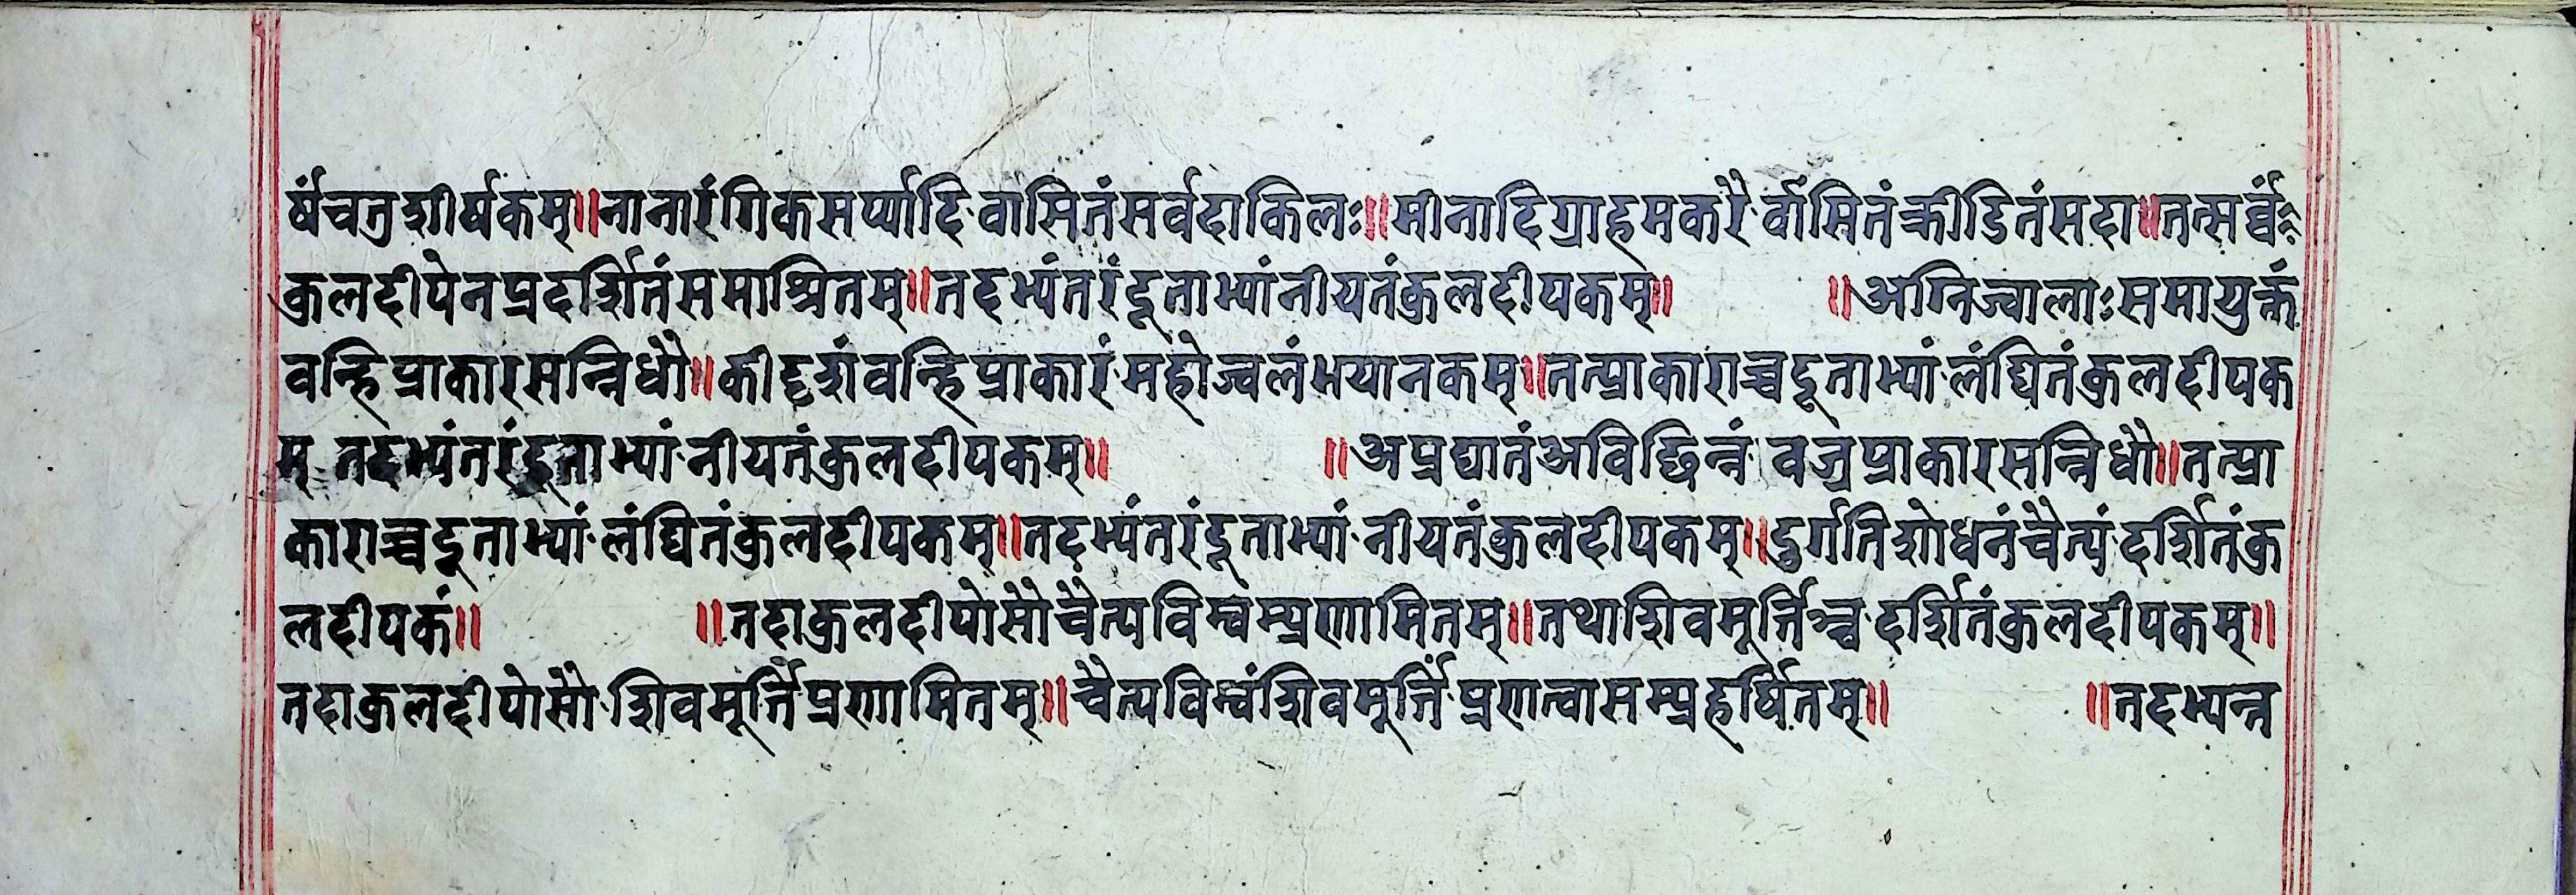 र्षंचतुशीर्षकम्॥नानारंगिकसर्प्यादिवासितंसर्वदाकिलः॥मीनादिग्राहमकरैर्वासितंक्रीडितंसदा॥तत्सर्व्वं
कुलदीपेनप्रदर्शितंसमाश्रितम्॥तदभ्यंतरंदूताभ्यांनीयतंकुलदीपकम्॥ ॥अग्निज्वालाःसमायुक्तं
वन्हिप्राकारसन्निधौ॥कीदृशंवन्हिप्राकारंमहोज्वलंभयानकम्॥तत्प्राकाराच्चदूताभ्यांलंघितंकुलदीपक
म् तदभ्यंतरंदूताभ्यांनीयतंकुलदीपकम्॥ ॥अप्रघातंअविछिन्नं वज्रप्राकारसन्निधौ॥तत्प्रा
काराच्चदूताभ्यांलंघितंकुलदीपकम्॥तदभ्यंतरंदूताभ्यांनीयतंकुलदीपकम्॥दुर्गतिशोधनंचैत्यंदर्शितंकु
लदीपकं॥ ॥तदाकुलदीपोसौचैत्यविम्वंम्प्रणामितम्॥तथाशिवमूर्त्तिञ्चदर्शितंकुलदीपकम्॥
तदाकुलदीपोसौशिवमूर्त्तिंप्रणामितम्॥चैत्यविम्वंशिवमूर्त्तिंप्रणत्वासम्प्रहर्षितम्॥ ॥तदभ्यन्त